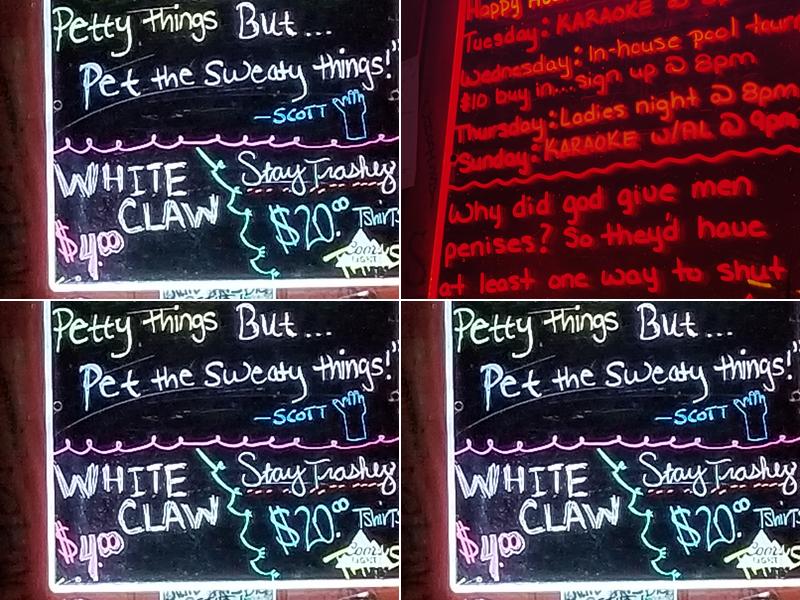 Petty things But...
Pet the Sweaty things!"
-SCOTT
WHITE
CLAW
$4.00
Stay Trashey
$20.00 TShirts
Coors
LIGHT
Happy
Tuesday: KARAOKE @
Wednesday: In-house pool
$10 buy in...sign up @ 8pm
Thursday: Ladies night @ 8pm
Sunday: KARAOKE w/AL @ 9pm
Why did god give men
penises? So they'd have
at least one way to shut
Petty things But...
Pet the Sweaty things!"
-SCOTT
WHITE
CLAW
$4.00
Stay Trashey
$20.00 TShirts
Coors
LIGHT
Petty things But...
Pet the Sweaty things!"
-SCOTT
WHITE
CLAW
$4.00
Stay Trashey
$20.00 TShirts
Coors
LIGHT